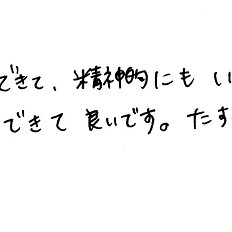 できて、精神的にもい
できて良いです。たす